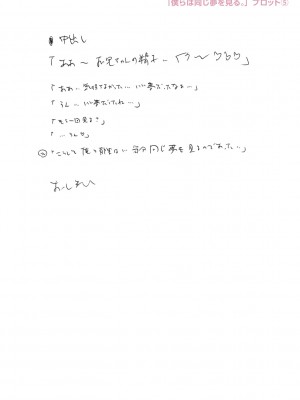 「僕らは同じ夢を見る。」プロット⑤
中出し
「ああ〜お兄ちゃんの精子…
「ああ…気持ちよかった…いい夢だったなぁ…」
「うん…いい夢だったね…」
「もう一回見るか」
「…うん」
「こうして俺と は 同じ夢を見るのであった…」
おしまい